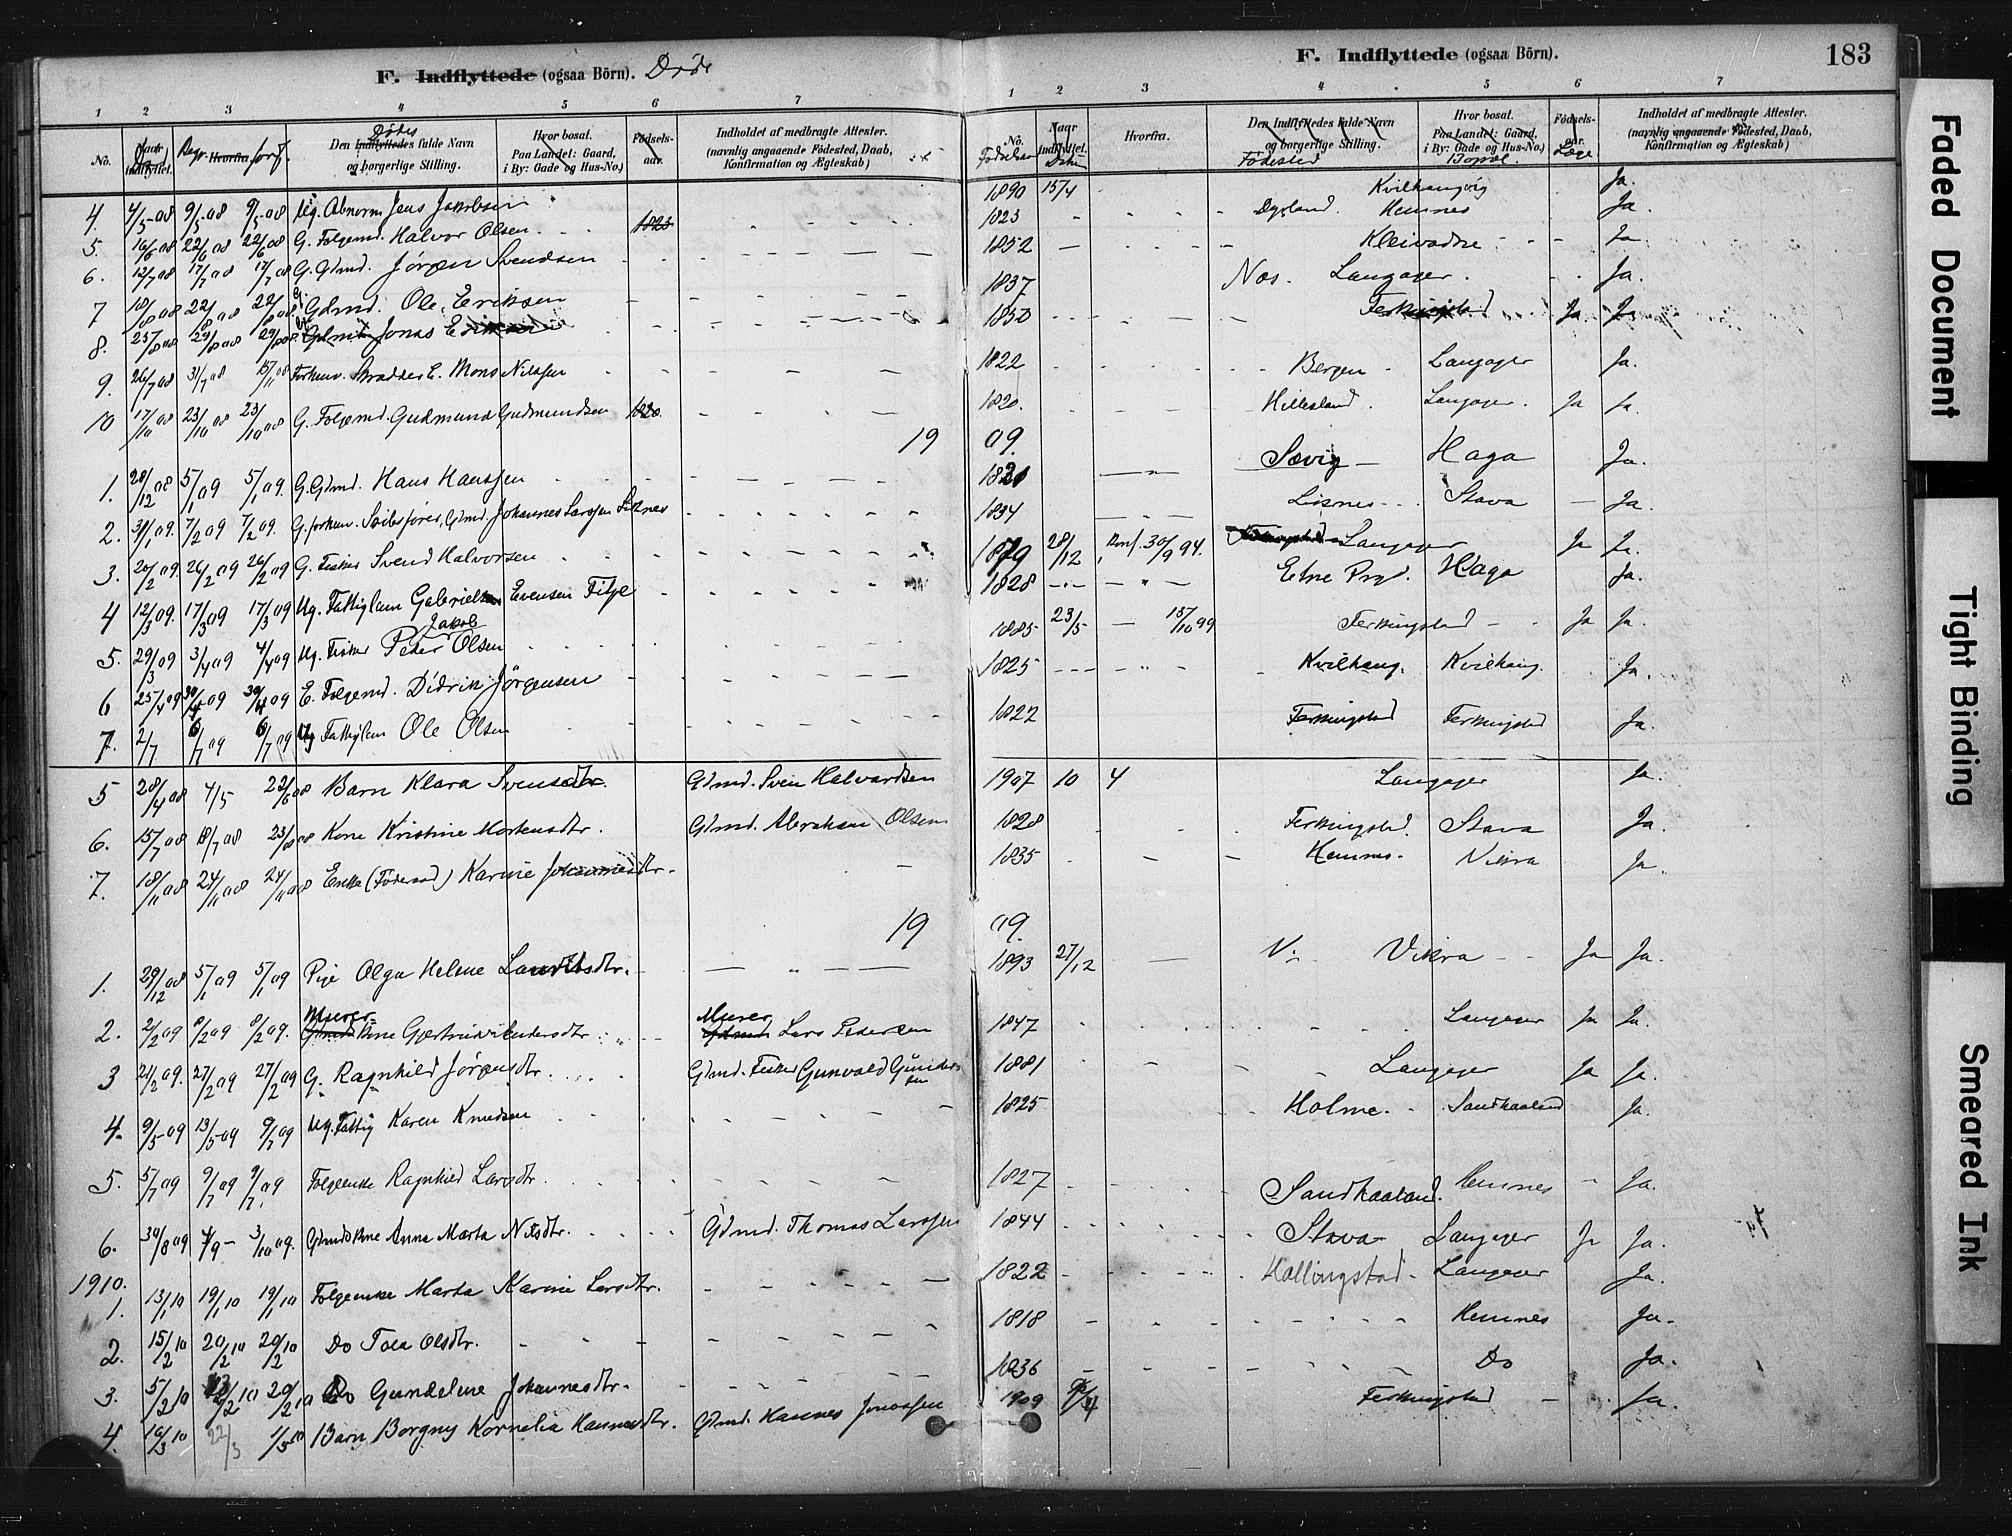 F. Indflyttede (ogsaa Börn). Döde
1 2 3 4 5 6 7
No. Naar indflyttet. Regr. Hvorfra Jordf. Den Indflyttedes fulde Navn og borgerlige Stilling. Dödes Hvor bosat. Paa Landet: Gaard, i By: Gade og Hus-No.) Födsels-aar. Indholdet af medbragte Attester. (navnlig angaaende Födested, Daab, Konfirmation og Ægteskab)
4. 4/5-08 9/5-08 9/5-08 Ug. Abnorm Jens Jakobsen
5. 16/6 08 22/6 08 22/6 08 G. Folgemd. Halvor Olsen 1823
6. 12/7 08 17/7 08 17/7 08 G. Gdmd. Jörgen Svendsen
7 18/8 08 22/8 08 22/8 08 G. Gdmd. Ole Eriksen
8. 25/8 08 29/8 08 29/8 08 Gdmd. Jonas
9. 26/7 08 31/7 08 15/11 08 Forhenv. Skrædder E. Mons Nilssen
10 17/10 08 23/10 08 23/10 08 G. Folgemd. Gudmund Gudmundsen 1820
19
1. 28/12 08 5/1 09 5/1 09. G. Gdmd. Hans Hanssen
2. 31/1 09. 7/2 09 7/2 09. G. forhenv. Johannes Larssen
3. 20/2 09. 26/2 09 26/2 09 G. Fisker Svend Halvorsen
4 12/3 09. 17/3 09 17/3 09 Ug. Fattiglem Gabriel Evensen Fitje
5. 29/3 09 3/4 09 4/4 09 Ug. Fisker Peter Jakob Olsen
6 25/4 09 30/4 09 30/4 09 E. Folgemd. Didrik Jörgensen
7. 2/7 6/7 09 6/7 09 Ug Fattiglem Ole Olsen
5 28/4 08 4/5 22/6 08 Barn Klara Svensdtr. Gdmd. Sven Halvardsen
6. 15/7 08 18/7 08 23/8 08 Kone Kristine Mortensdtr. Gdmd. Abraham Olsen
7. 18/11 08 24/11 08 24/11 08 Enke (Föderaad) Karine Johannesdtr.
19
1. 29/12 08 5/1 09 5/1 09 Pige Olga Helene Lauritsdtr.
2. 2/2 09 8/2 09 8/2 09. Murer Kone Gjertrud Andersdtr Murer Lars Pedersen
3 21/2 09. 27/2 09 27/2 09 G. Ragnhild Jörgensdtr. Gdmd. Fisker Gunvald Gundersen
4. 9/5-09 13/5-09 9/7 09 Ug. Fattig Karen Knudsen
5. 5/7 09 9/7 09 9/7 09 Folgeenke Ragnhild Larsdtr.
6. 30/8 09 4/9- 3/10 09. Gdmds Kone Anna Marta Nilsdtr. Gdmd. Thomas Larssen
1910.
1. 13/1 10 19/1 10 19/1 10 Folgeenke Marta Karine Larsdtr.
2. 15/2 10 20/2 10 20/2 10 Do Tola Olsdtr.
3. 5/2 10 20/2 10 Do Gundeline Johannesdtr.
4. 16/3 10 22/3 1/5 10 Barn Borgny Kornelia Hannesdtr. Gdmd. Hannes Jonassen
F. Indflyttede (ogsaa Börn). 183
1 2 3 4 5 6 7
No. Födselsaar Naar indflyttet. Hvorfra. Den Indflyttedes fulde Navn og borgerlige Stilling. Födested Hvor bosat. Paa Landet: Gaard, i By: Gade og Hus-No.) Bopæl. Födsels-aar. Læge Indholdet af medbragte Attester. (navnlig angaaende Födested, Daab, Konfirmation og Ægteskab)
1890 15/4 Kvilhaugvig Ja.
1823 Dysland. Hemnes Ja.
1852 Kleivadne Ja
1837 Nos. Langager. Ja.
1850 Ferkingstad Ja Ja
1822 Bergen Langager Ja.
1820. Hillesland. Langager. Ja Ja.
09.
1821 Sævig Haga Ja.
1834 Lisnes Stava Ja.
1879 28/12 Konf. 30/9 94. Langager Ja Ja.
1828 Etne Prgd. Haga Ja.
1885 23/5 15/10 99 Ferkingstad Ja Ja.
1825 Kvilhaug. Kvilhaug. Ja.
1827 Ferkingstad Ferkingstad Ja.
1907 10 4 Langager Ja.
1828 Ferkingstad. Stava Ja.
1835 Hemnes. Vikra Ja.
09.
1893 27/12 V. Vikra Ja Ja.
1847 Langager Ja Ja.
1881 Langager Ja Ja.
1825 Holme. Sandhaaland Ja.
1827 Sandhaaland. Hemnes Ja.
1844 Stava Langager Ja Ja.
1822 Hallingstad Langager Ja.
1818 Hemnes Ja.
1836 Do Ja.
1909 Ferkingstad Ja.
Faded Document
Tight Binding
Smeared Ink